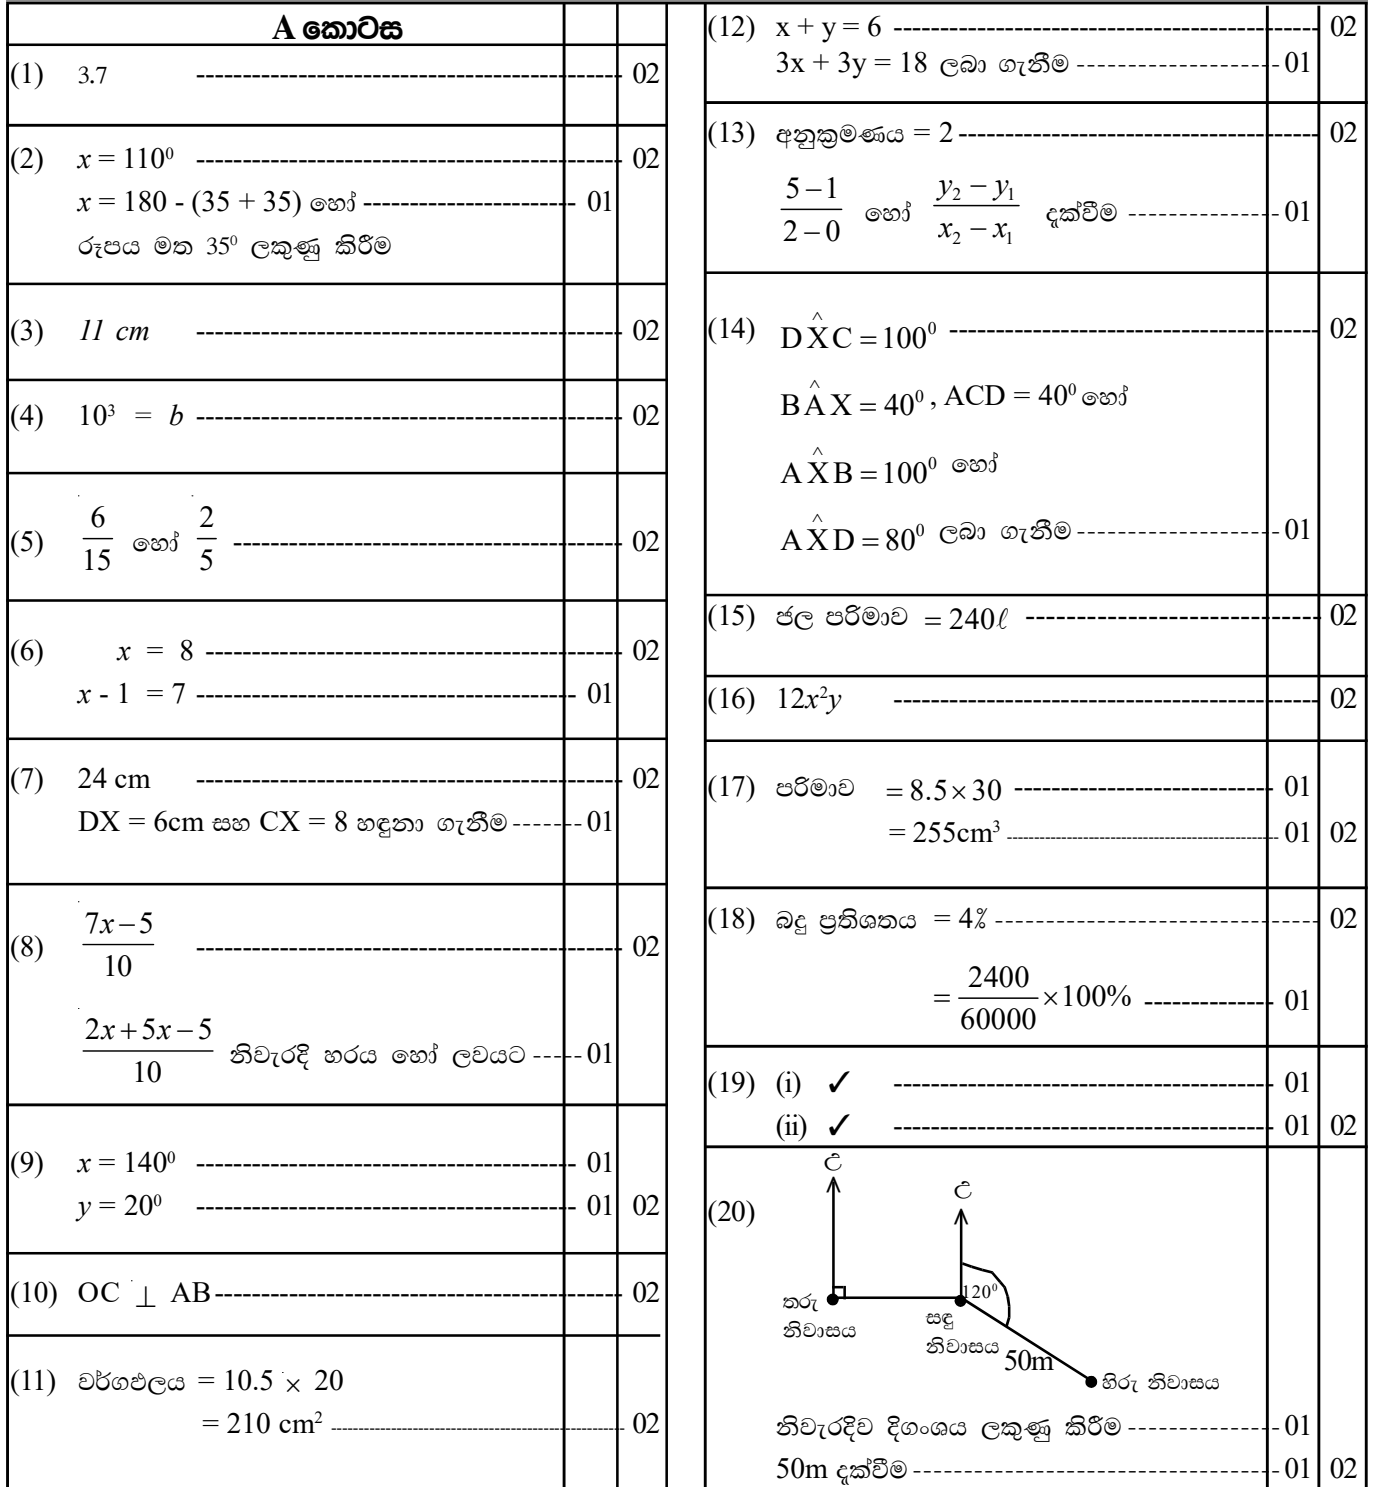 A කොටස
(1) 3.7 ---------- 02
(2) x = 110⁰ ---------- 02
x = 180 - (35 + 35) හෝ ---------- 01
රූපය මත 35⁰ ලකුණු කිරීම
(3) 11 cm ---------- 02
(4) 10³ = b ---------- 02
(5) 6/15 හෝ 2/5 ---------- 02
(6) x = 8 ---------- 02
x - 1 = 7 ---------- 01
(7) 24 cm ---------- 02
DX = 6cm සහ CX = 8 හඳුනා ගැනීම ------- 01
(8) (7x − 5)/10 ---------- 02
(2x + 5x − 5)/10 නිවැරදි හරය හෝ ලවයට ----- 01
(9) x = 140⁰ ---------- 01
y = 20⁰ ---------- 01 02
(10) OC ⊥ AB ---------- 02
(11) වර්ගඵලය = 10.5 × 20
= 210 cm² ---------- 02
(12) x + y = 6 ---------- 02
3x + 3y = 18 ලබා ගැනීම ---------- 01
(13) අනුක්‍රමණය = 2 ---------- 02
(5 − 1)/(2 − 0) හෝ (y₂ − y₁)/(x₂ − x₁) දැක්වීම ---------- 01
(14) DX̂C = 100⁰ ---------- 02
BÂX = 40⁰ , ACD = 40⁰ හෝ
AX̂B = 100⁰ හෝ
AX̂D = 80⁰ ලබා ගැනීම ---------- 01
(15) ජල පරිමාව = 240ℓ ---------- 02
(16) 12x²y ---------- 02
(17) පරිමාව = 8.5 × 30 ---------- 01
= 255cm³ ---------- 01 02
(18) බදු ප්‍රතිශතය = 4% ---------- 02
= 2400/60000 × 100% ---------- 01
(19) (i) ✓ ---------- 01
(ii) ✓ ---------- 01 02
(20)
උ
උ
120⁰
තරු
නිවාසය
සඳු
නිවාසය
50m
හිරු නිවාසය
නිවැරදිව දිගංශය ලකුණු කිරීම ---------- 01
50m දැක්වීම ---------- 01 02